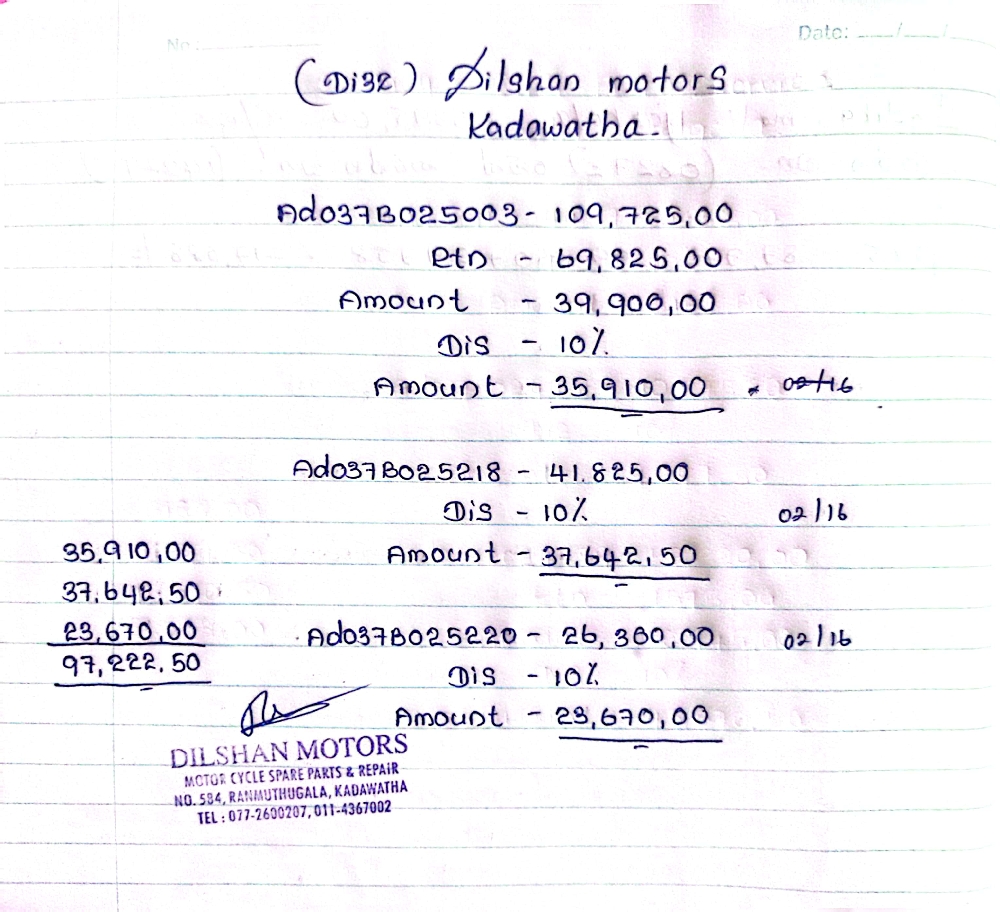 No:
Date: __/__/__
(Di32) Dilshan motors
Kadawatha.
Ad037B025003 - 109,725,00
Rtn - 69,825,00
Amount - 39,900,00
Dis - 10%
Amount - 35,910,00 02/16
Ad037B025218 - 41.825,00
Dis - 10% 02/16
Amount - 37,642,50
Ad037B025220 - 26,300,00 02/16
Dis - 10%
Amount - 23,670,00
35,910,00
37,642,50
23,670,00
97,222.50
DILSHAN MOTORS
MOTOR CYCLE SPARE PARTS & REPAIR
NO. 584, RANMUTHUGALA, KADAWATHA
TEL : 077-2600207, 011-4367002